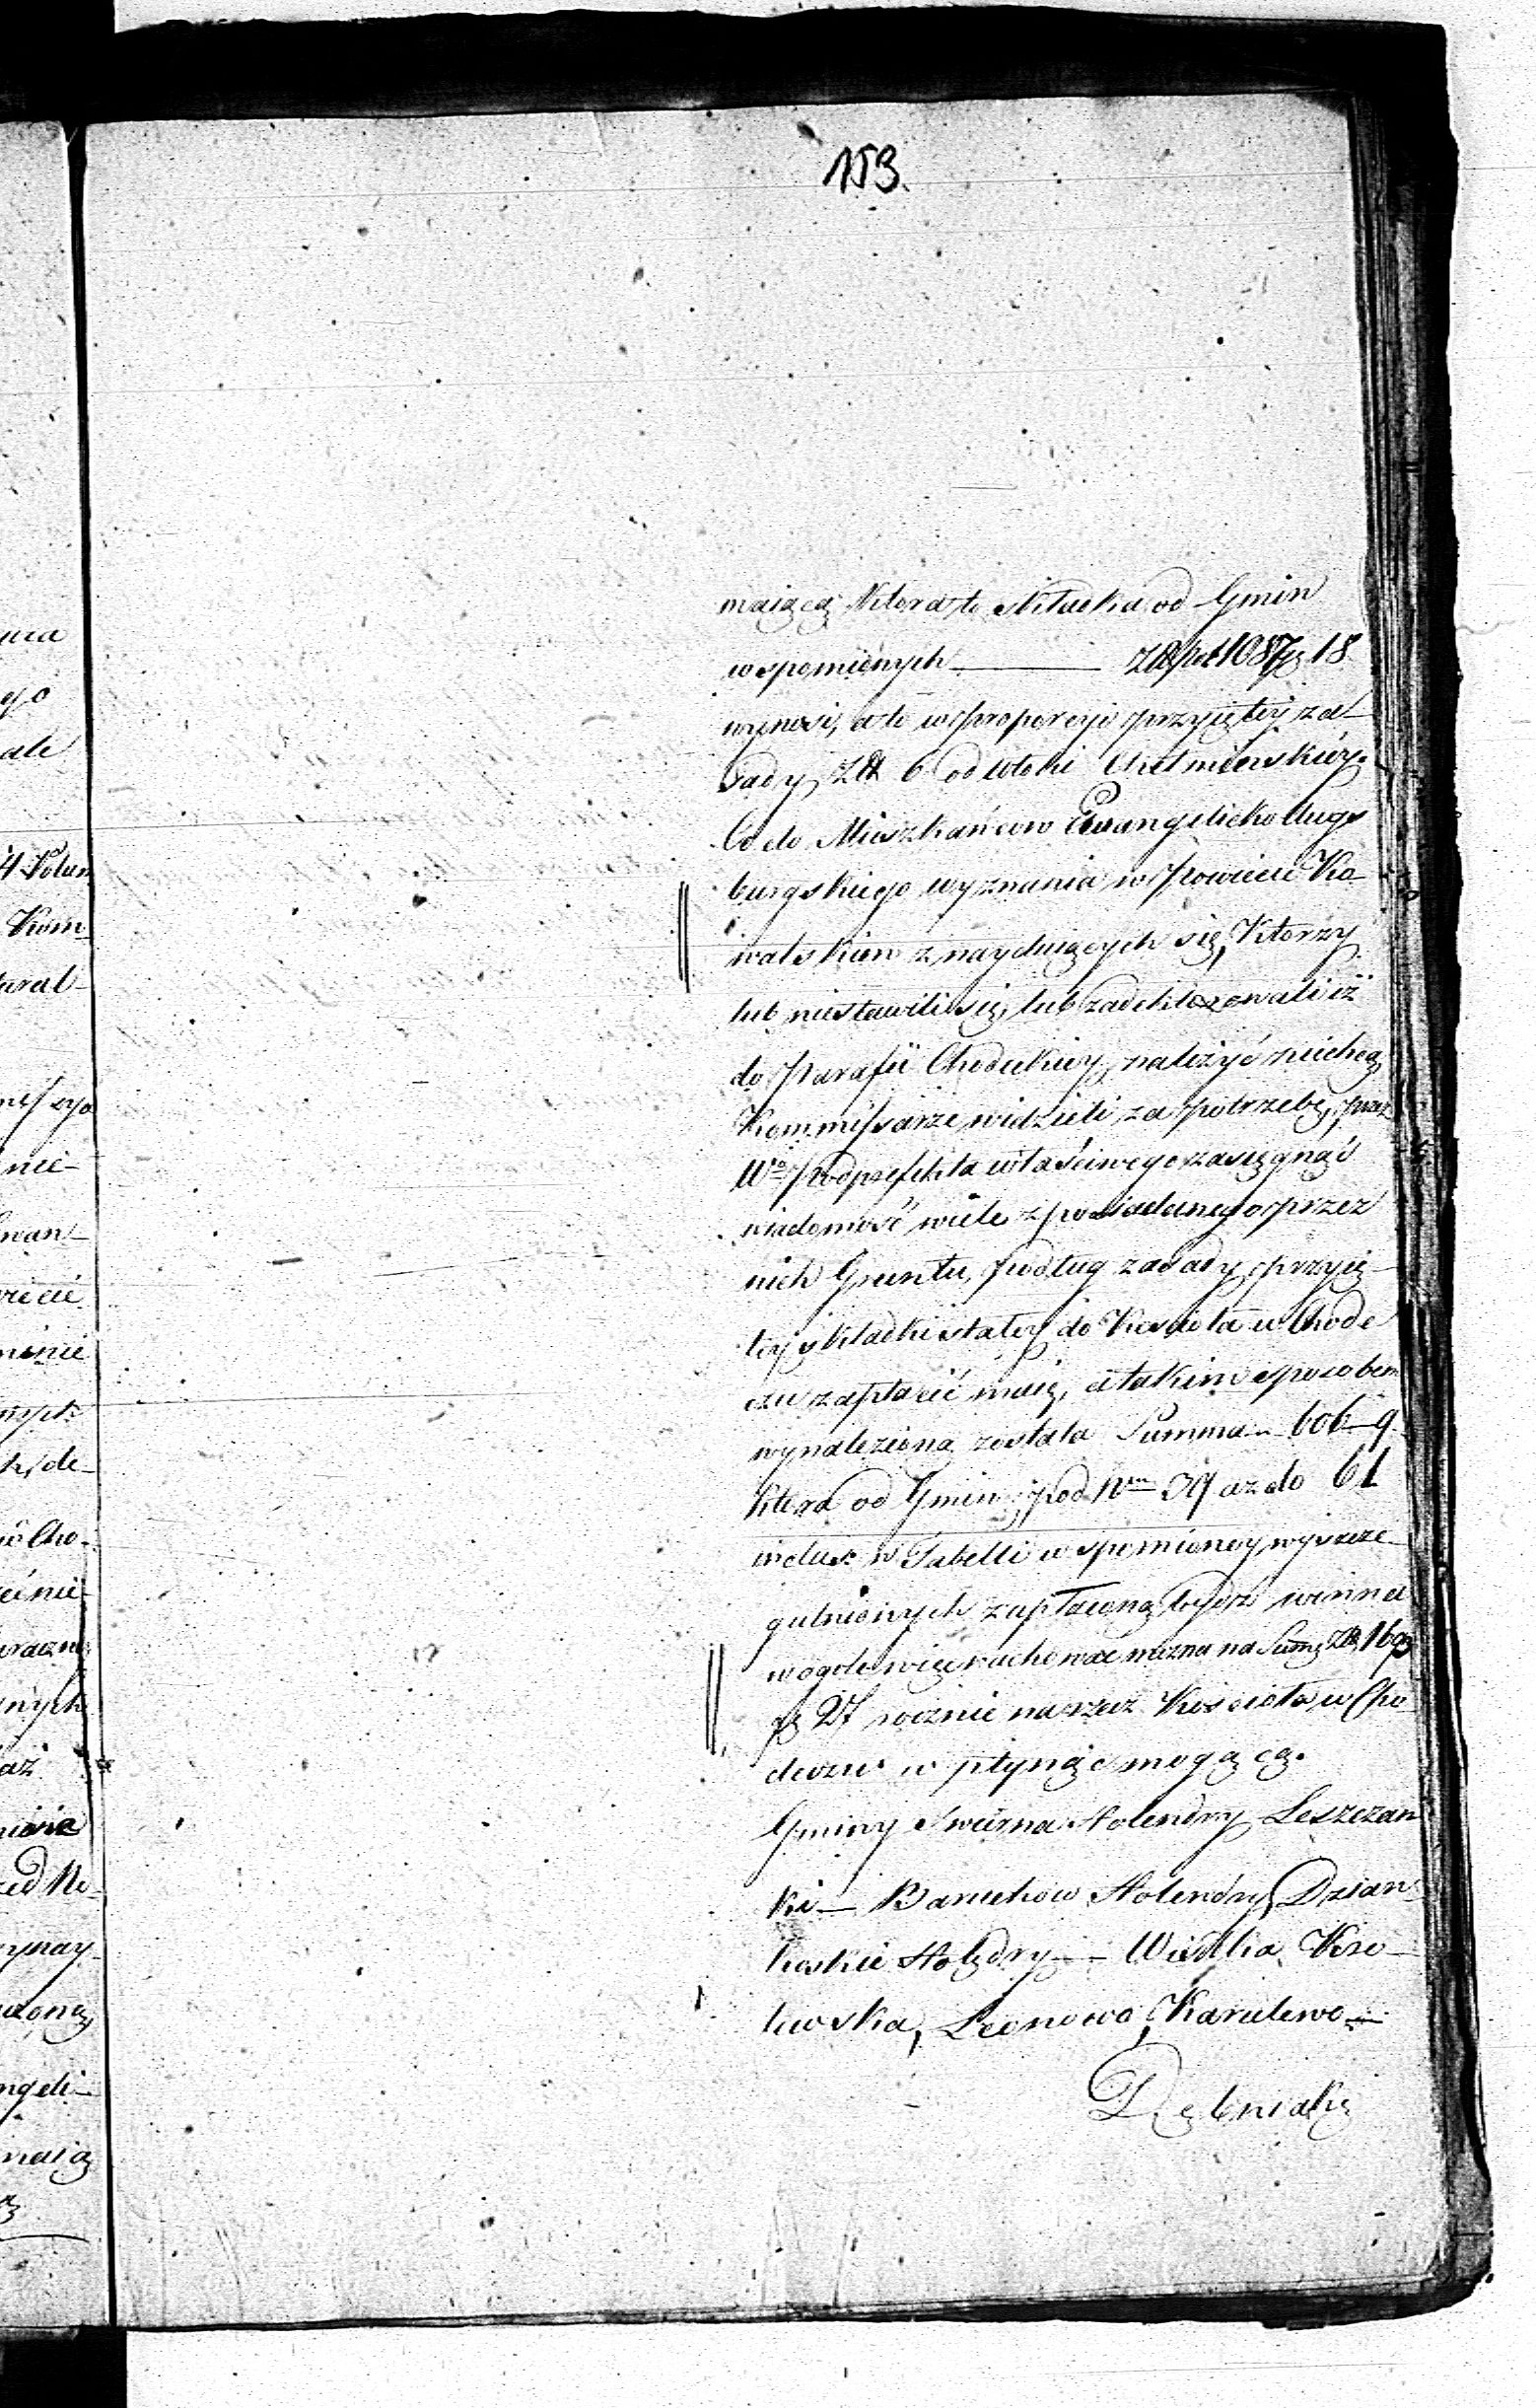 153.
maiącą, Ktora to składka od Gmin
wspomionych — Złł pol 1087 g 18
wynosi, a to w proporcyi przyiętey za-
sady Złł 6 od włoki Chełmińskiéy.
Co do Mieszkańcow Ewangelicko Augs
burgskiego wyznania w Powiecie Ko
walskim znayduiących się, Ktorzy
lub niestawili się, lub zadeklarowali iż
do Parafii Chodeckiey należyć niechcą
Kommissarze widzieli za potrzebę, przez
Wo Podprefekta właściwego zasięgnąć
wiadomość wiele z posiadanego przez
nich Gruntu, podług zasady przyię-
tey składki stałey do Kościoła w Chode
czu zapłacić maią, a takim sposobem
wynaleziona została Summa 606 — 9
Ktora od Gmin pod Nrm 39 az do 61
inclus: w Tabelli wspomioney wyszcze-
gulnionych zapłacona bydź winna
wogole więc rachować mozna na Summę Złł 1693
g 27 rocznie na rzecz Kościoła w Cho-
deczu w płynąć mogącą.
Gminy Swierna Holendry Leszczan
ki — Baruchow Holendry, Dzian-
koskie Holędry — Wiedlka Kro-
lewska, Leonowo, Karulewo —
Dębniaki
ura
ale
Kom-
nie-
ewan-
nych
k, de-
Cho-
nych
aż
zed Ke-
ngeli-
maią